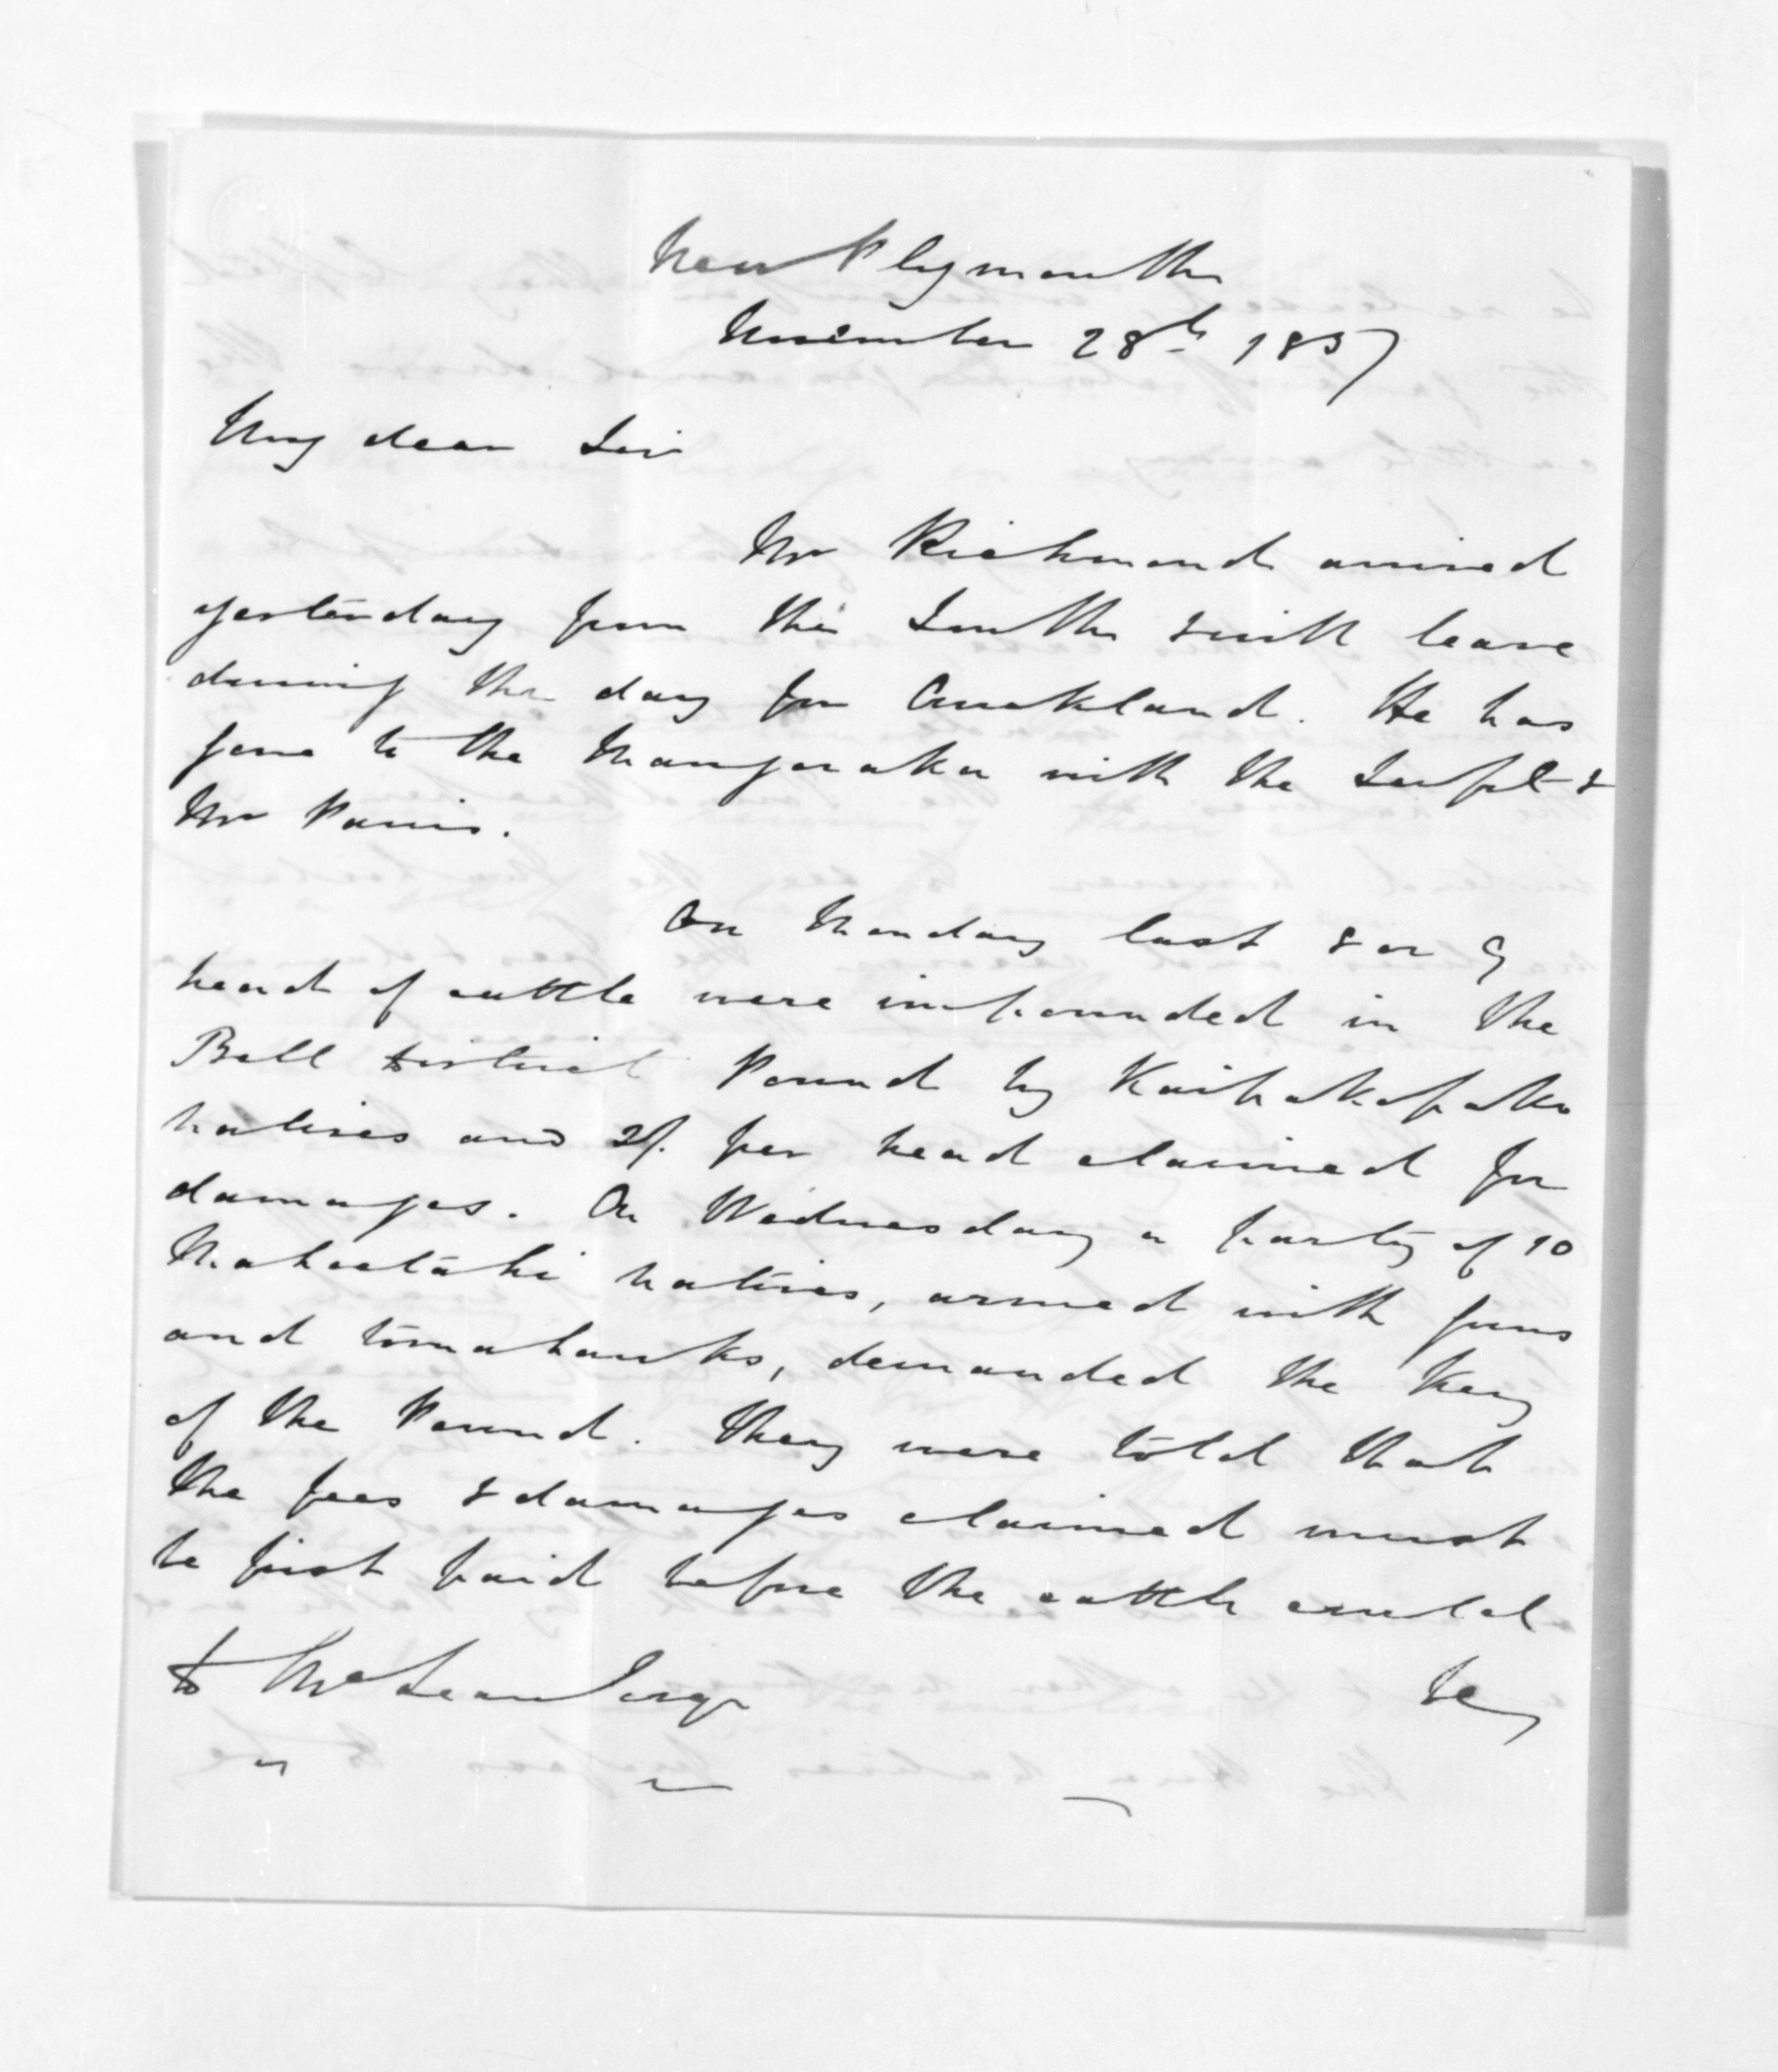 New Plymouth
November 28th 1857
My dear Sir
Mr Richmond arrived
yesterday from the South & will leave
during the day for Auckland. He has
gone to the Mangoraka with the Supt &
Mr Parris.
On Monday last 8 or 9
head of cattle were impounded in the
Bell District Pound by Kaipakopako
natives and 2/. per head claimed for
damages. On Wednesday a party of 10
Mahoetahi natives, armed with guns
and tomahawks, demanded the key
of the Pound. They were told that
the fees & damages claimed must
be first paid before the cattle could
to McLean Esqr
be